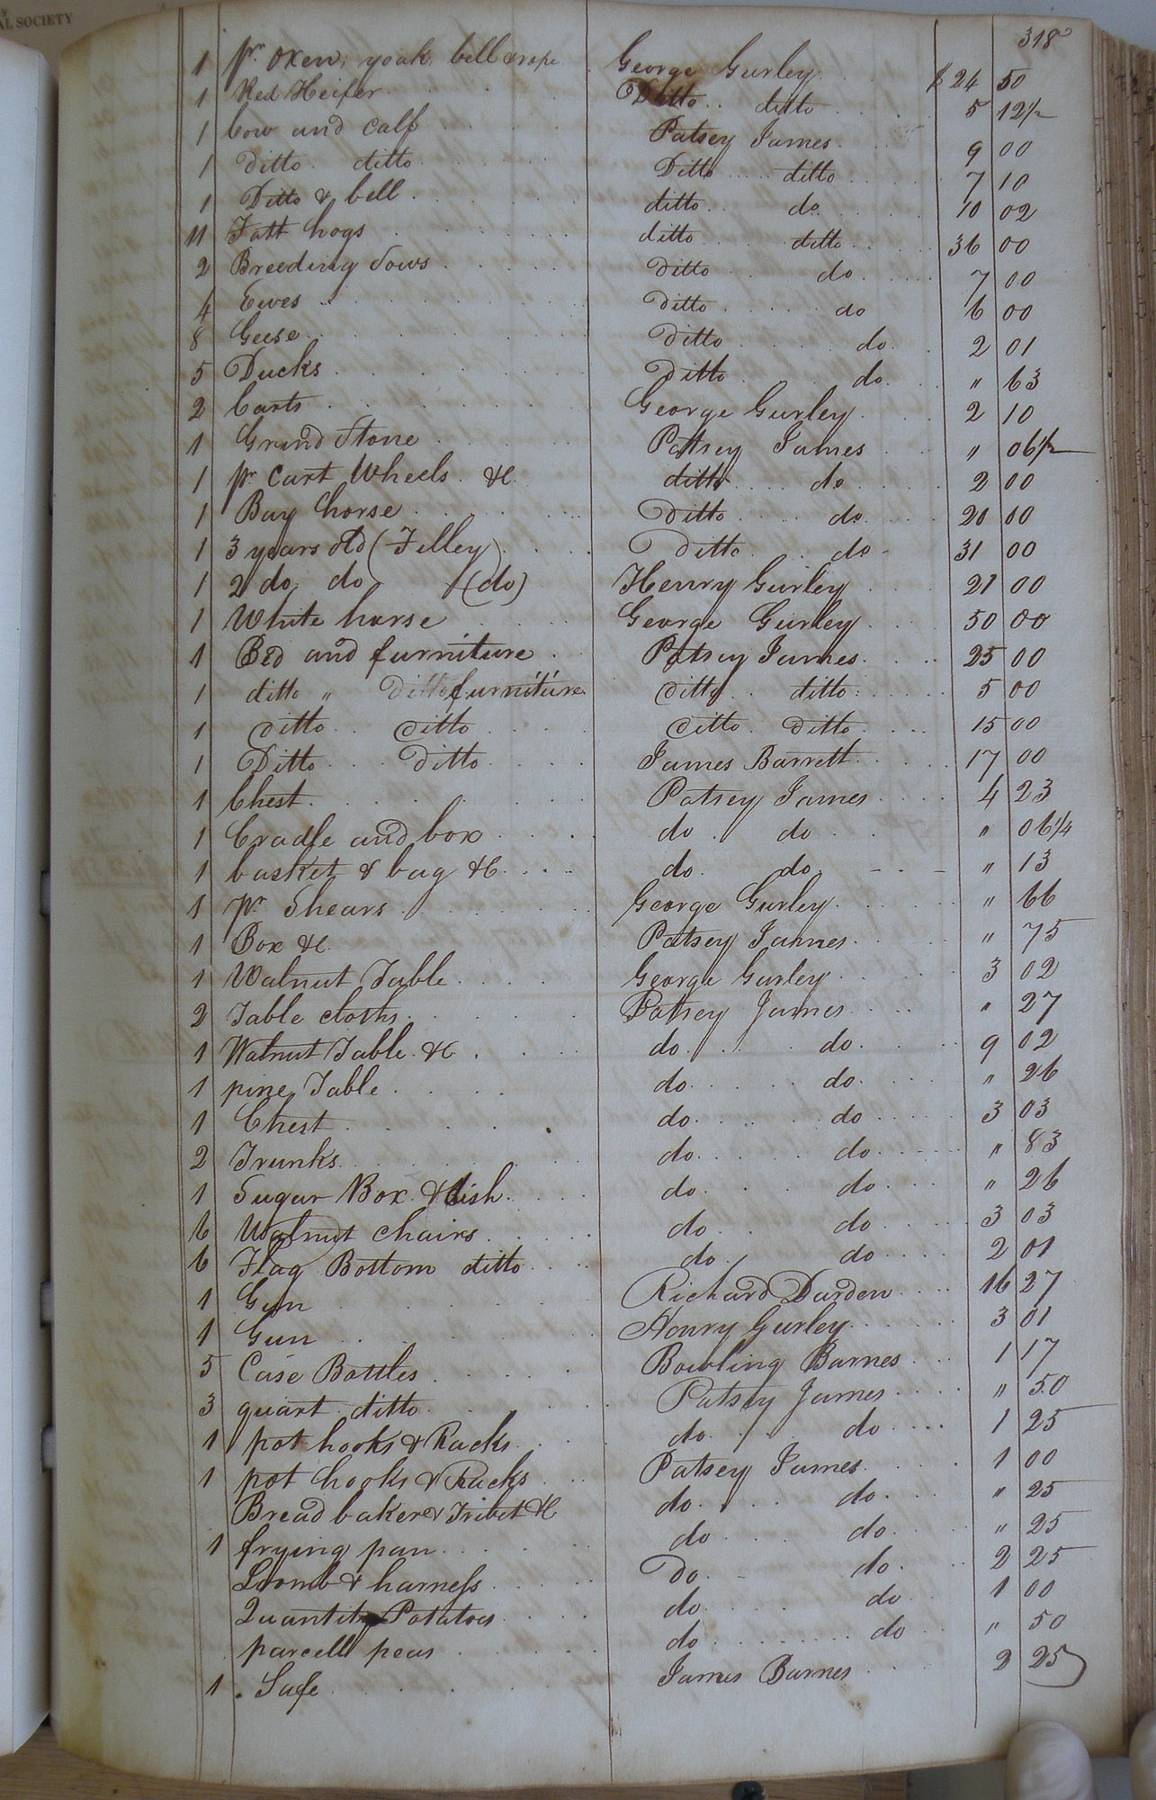 AL SOCIETY
318
1 pr. Oxen, yoak, bell & rope George Gurley $24 50
1 Red Heifer Ditto ditto 5 12 1/2
1 Cow and Calf Patsey James 9 00
1 ditto ditto Ditto ditto 7 10
1 Ditto & bell ditto do 10 02
11 Fatt hogs ditto ditto 36 00
2 Breeding Sows ditto do 7 00
4 Ewes ditto do 6 00
8 Geese ditto do 2 01
5 Ducks ditto do " 63
2 Carts George Gurley 2 10
1 Grind Stone Patsey James " 06 1/2
1 pr Cart Wheels &c ditto do 2 00
1 Bay horse Ditto do 20 00
1 3 years old (Filley) Ditto do 31 00
1 2 do do (do) Henry Gurley 21 00
1 White horse George Gurley 50 00
1 Bed and furniture Patsey James 25 00
1 ditto " Ditto furniture ditto ditto 5 00
1 ditto ditto ditto ditto 15 00
1 Ditto Ditto James Barrett 17 00
1 Chest Patsey James 4 23
1 Cradle and box do do " 06 1/4
1 basket & bag &c do do " 13
1 pr Shears George Gurley " 66
1 Box &c Patsey James " 75
1 Walnut Table George Gurley 3 02
2 Table cloths Patsey James " 27
1 Walnut Table &c do do 9 02
1 pine Table do do " 26
1 Chest do do 3 03
2 Trunks do do " 83
1 Sugar Box & dish do do " 26
6 Walnut chairs do do 3 03
6 Flag Bottom ditto do do 2 01
1 Gun Richard Darden 16 27
1 Gun Henry Gurley 3 01
5 Case Bottles Bowling Barnes 1 17
3 quart ditto Patsey James " 50
1 pot hooks & Racks do do 1 25
1 pot hooks & Racks Patsey James 1 00
Bread baker & Trivet &c do do " 25
1 frying pan do do " 25
Loomb & harness Do do 2 25
Quantity Potatoes do do 1 00
parcell peas do do " 50
1 Safe James Barnes 2 25